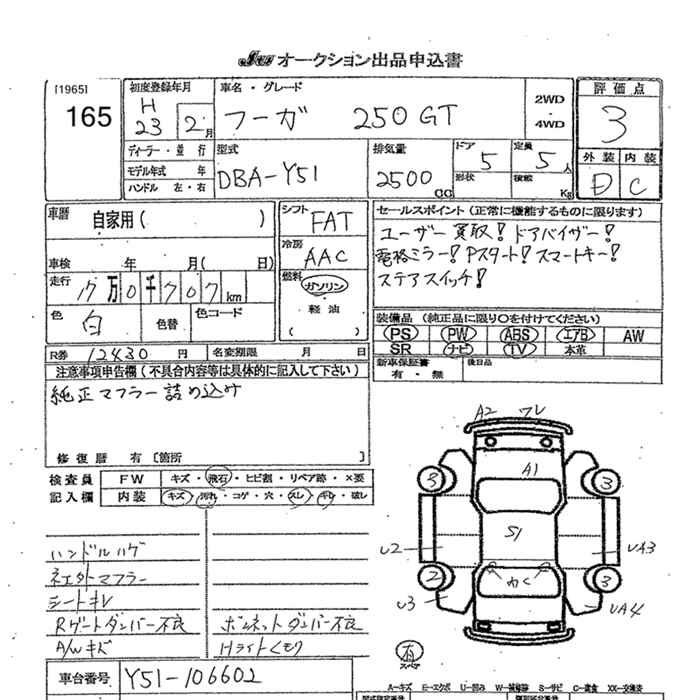 JU オークション出品申込書
[1965]
165
初度登録年月
H
23 2月
車名・グレード
フーガ 250GT
2WD
・
4WD
評価点
3
外装 内装
D C
ディーラー・並行
モデル年式 年
ハンドル 左・右
型式
DBA-Y51
排気量
2500cc
ドア 5
形状
定員 5人
積載 Kg
車歴 自家用( )
車検 年 月( 日)
走行 17万0千707km
色 白 色替 色コード
R券 12430円 名変期限 月 日
シフト FAT
冷房 AAC
燃料 ガソリン
軽油
( )
セールスポイント(正常に機能するものに限ります)
ユーザー買取!ドアバイザー!
電格ミラー!Pスタート!スマートキー!
ステアスイッチ!
装備品(純正品に限り○を付けてください)
PS PW ABS エアB AW
SR ナビ TV 本革
新車保証書
有・無
後日品
注意事項申告欄(不具合内容等は具体的に記入して下さい)
純正マフラー詰め込み
修復歴 有〔箇所 〕
検査員
記入欄
FW キズ・飛石・ヒビ割・リペア跡・×要
内装 キズ・汚れ・コゲ・穴・スレ・キレ・破レ
ハンドルハゲ
社外マフラー
シートキレ
Rゲートダンパー不良 ボンネットダンパー不良
A/Wキズ Hライトくもり
A2 ワレ
A1
3 3
S1
U2 UA3
わく
2 3
U3 UA4
有
スペア
車台番号 Y51-106602
A-キズ E-エクボ U-凹み W-補修跡 S-サビ C-腐食 XX-交換済